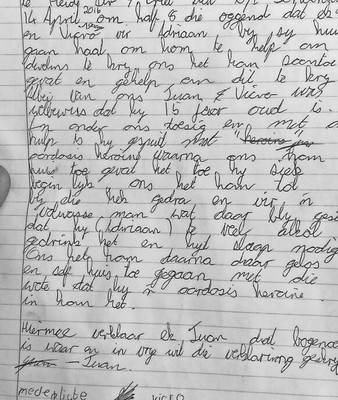 14 April 2016 om half 5 die oggend dat ek
en Vicvo vir Adriaan by sy huis
gaan haal om hom te help om
dwelms te kry, ons het hom saam
gevat en gehelp om dit te kry
Albei van ons Juan & Vicvo was
welbewus dat hy 15 jaar oud is.
En onder ons toesig en met
hulp is hy gespuit met heroine
oordosis heroine waarna ons hom
huis toe gevat het toe hy siek
begin lyk ons het hom tot
by die hek gedra en vir 'n
volwasse man wat daar bly gesê
dat hy (Adriaan) te veel alkohol
gedrink het en hy slaap nodig
Ons het hom daarna daar gelos
en self huis toe gegaan met die
wete dat hy 'n oordosis heroine
in hom het.
Hiermee verklaar ek Juan dat bogenoemde
is waar en in vrye wil die verklaring
- Juan.
medepligtige vicvo